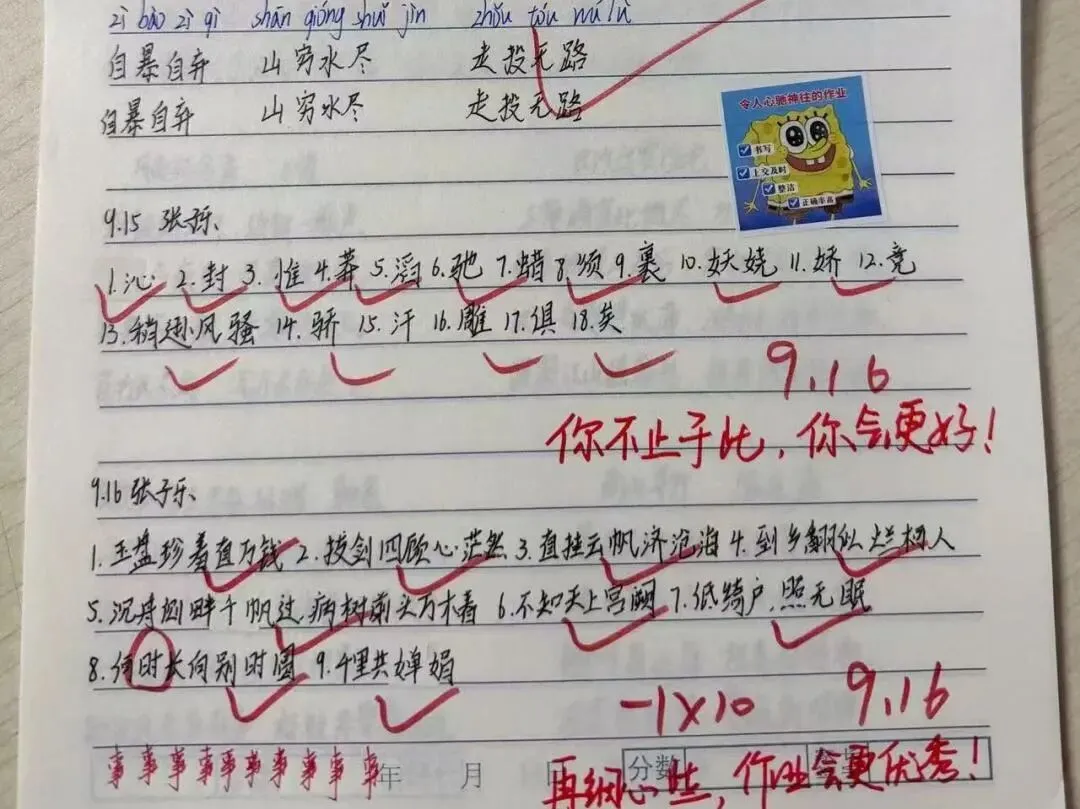 zì bào zì qì shān gióng shuǐ jìn zhǒu tóu wú lù
自暴自弃 山穷水尽 走投无路
自暴自弃 山穷水尽 走投无路
令人心驰神往的作业
书写
上交及时
整洁
正确率高
9.15 张子乐
1.沁 2.封 3.惟 4.莽 5.滔 6.驰 7.蜡 8.须 9.裹 10.妖娆 11.娇 12.竞
13.稍逊风骚 14.骄 15.汗 16.雕 17.俱 18.矣
9.16
你不止于此，你会更好！
9.16 张子乐
1.玉盘珍羞直万钱 2.拔剑四顾心茫然 3.直挂云帆济沧海 4.到乡翻似烂柯人
5.沉舟侧畔千帆过,病树前头万木春 6.不知天上宫阙 7.低绮户,照无眠
8.何时长向别时圆 9.千里共婵娟
-1×10 9.16
事事事事事事事事事事 年 月 分数
再细心些，作业会更优秀！